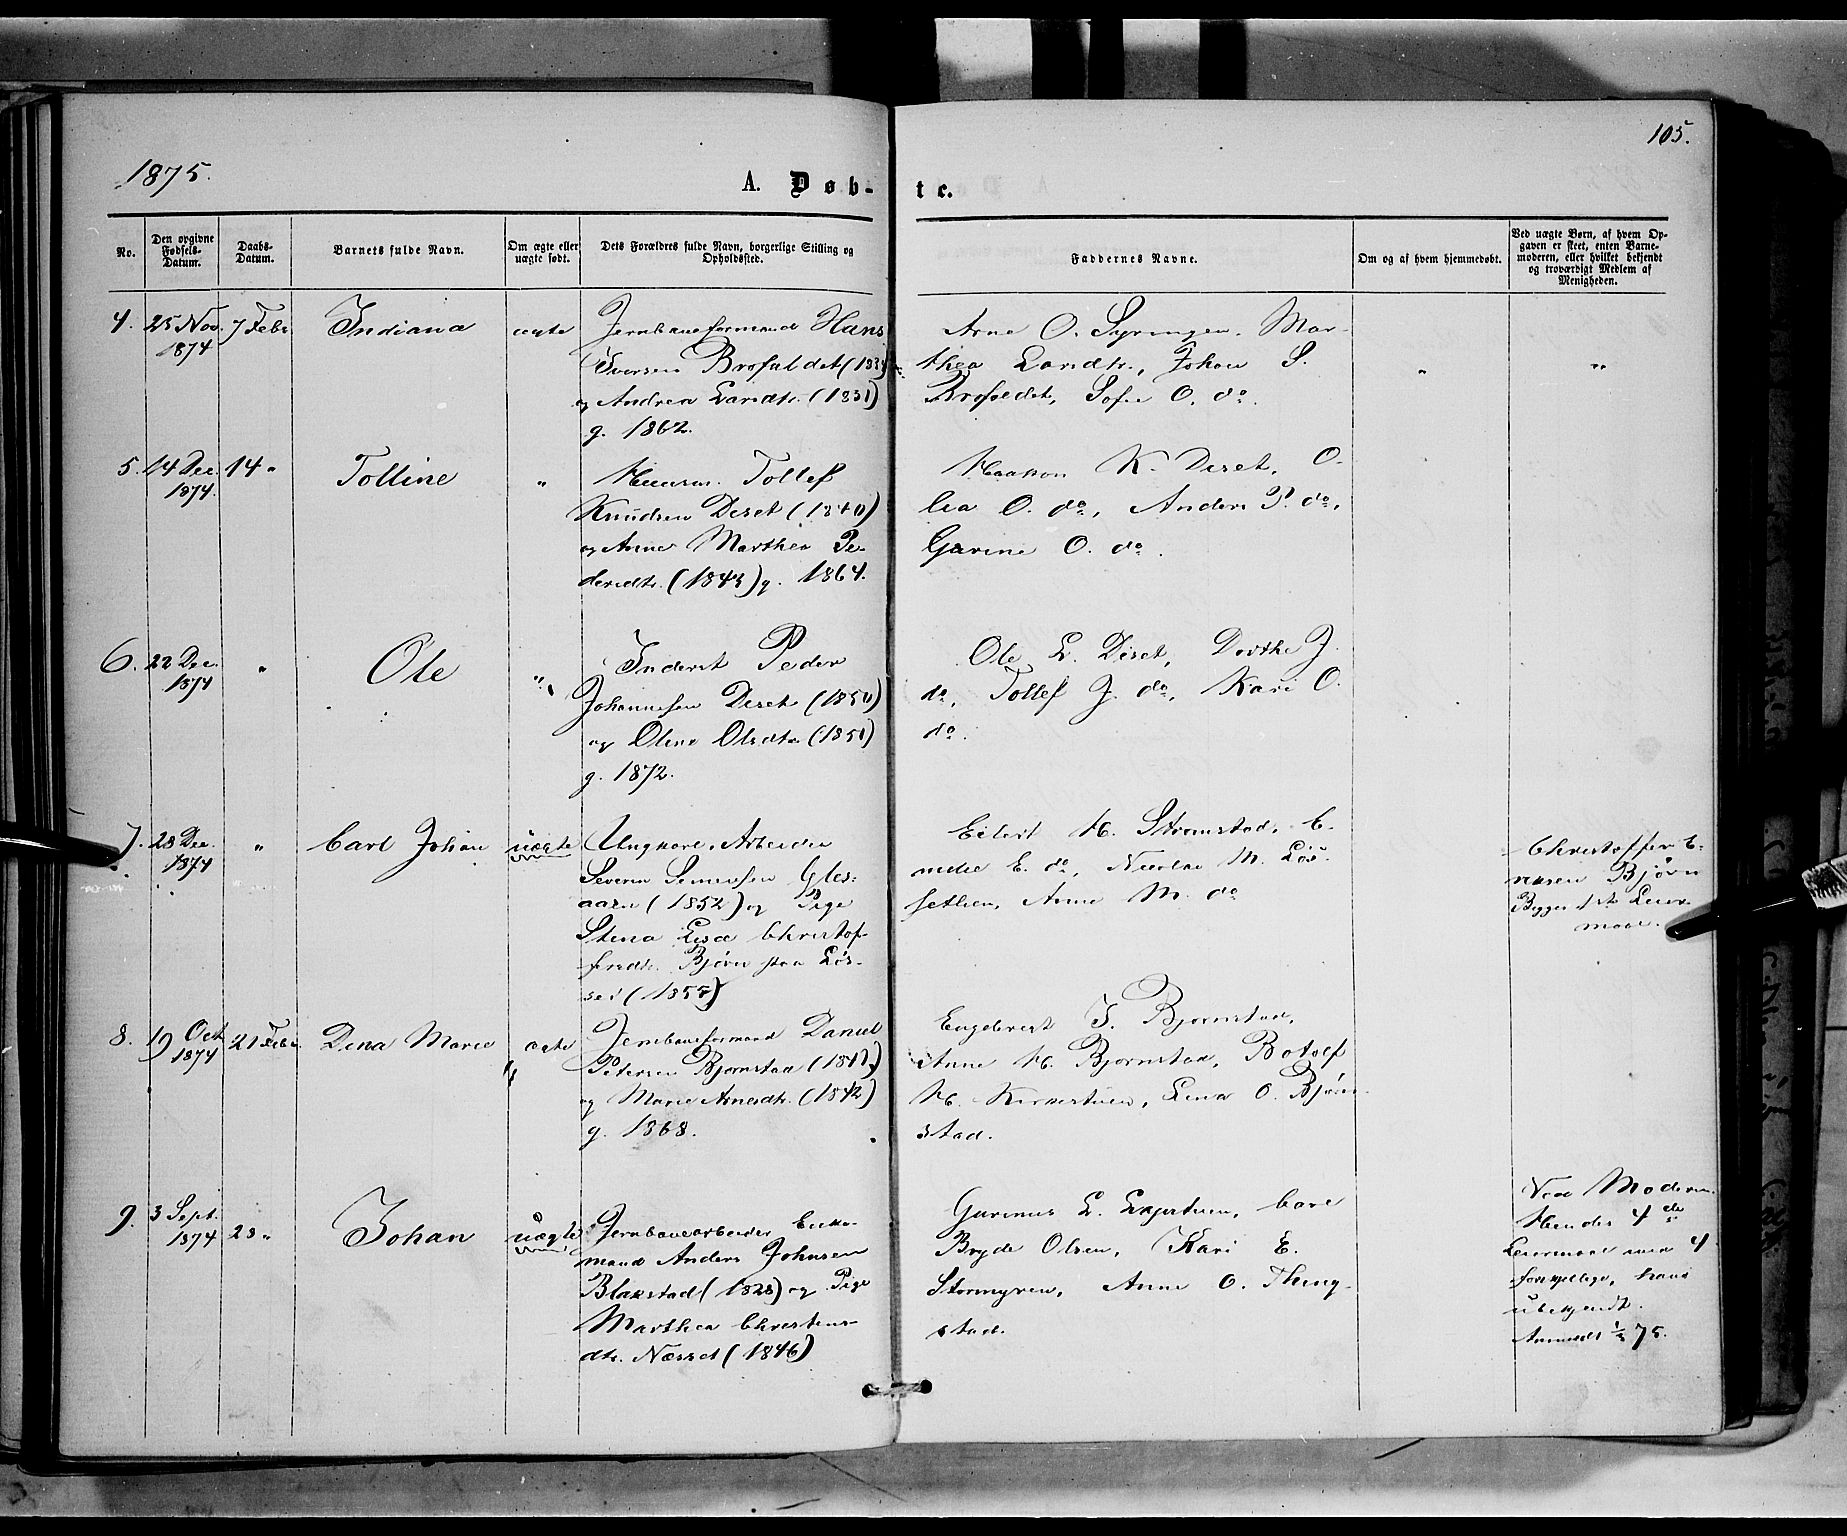 105.
1875.
A. Døb-
te.
No.
Den opgivne Fødsels-Datum.
Daabs-Datum.
Barnets fulde Navn.
Om ægte eller uægte født.
Dets Forældres fulde Navn, borgerlige Stilling og Opholdssted.
Faddernes Navne.
Om og af hvem hjemmedøbt.
Ved uægte Børn, af hvem Opgaven er skeet, enten Barnemoderen, eller hvilket bekjendt og troværdigt Medlem af Menigheden.
4. 25 Nov. 1874 7 Febr. Indiana ægte
Jernbaneformand Hans
Iversen Brofaldet
og Andrea Larsdtr. (1831)
g. 1862.
Arne O. Syringen, Mar-
thea Larsdtr., Johan S.
Brofaldet, Sofie O. do.
"
"
5. 14 Dec. 1874. 14 " Tolline "
Huusm. Tollef
Knudsen Diset (1840)
og Anne Marthea Pe-
dersdtr. (1843) g. 1864.
Haakon K. Diset, O-
lea O. do, Anders P. do,
Gurine O. do.
6. 22 Dec. 1874 " Ole "
Inderst Peder
Johannesen Diset (1850)
og Olene Olsdtr (1851)
g. 1872.
Ole L. Diset, Dorthe J.
do, Tollef J. do, Kari O.
do.
7. 28 Dec. 1874 " Carl Johan uægte
Ungkarl, Arbeider
Severin Simensen Gles-
aaen (1852) og Pige
Stina Lisa Christof-
fersdtr. Bjørn paa Løs-
set (1855)
Eilert H. Strømstad, E-
milie E. do, Nicolai M. Løs-
setlien, Anne M. do
Christoffer E-
riksen Bjørn
Begges 1ste Leier-
maal.
8. 19 Oct. 1874 21 Febr. Dina Marie ægte
Jernbaneformand Daniel
Petersen Bjørnstad
og Marie Arnesdtr. (1842)
g. 1868.
Engebret J. Bjørnstad,
Anne H. Bjørnstad, Botolf
H. Kirkestuen, Lina O. Bjørn-
stad.
9. 3 Sept. 1874 28 " Johan uægte
Jernbanearbeider Enke-
mand Anders Johnsen
Blakstad (1828) og Pige
Marthea Christens-
dtr. Næsset (1846)
Gurinus L. Stuen, Carl
Bryde Olsen, Kari E.
Stormyren, Anne O. Thing-
stad.
Ved Moderen.
Hendes 4de
Leiermaal med 4
forskjellige, hans
ubekjendt.
Anmeldt 1/3 75.